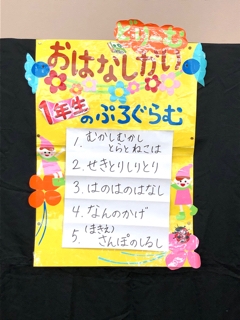 おはなしかい
1年生
のぷろぐらむ
1. むかしむかし
とらとねこは
2. せきとりしりとり
3. はのはのはなし
4. なんのかげ
5. (まきえ)
さんぽのしるし